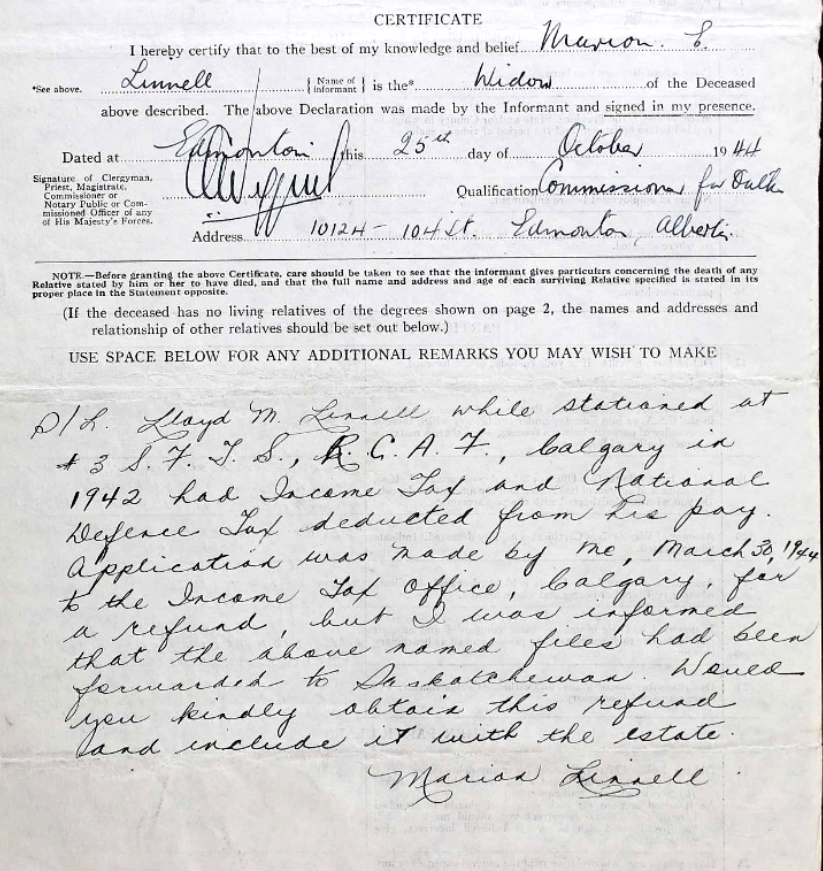 CERTIFICATE
I hereby certify that to the best of my knowledge and belief Marion. E.
*See above. Linnell { Name of Informant } is the* Widow of the Deceased
above described. The above Declaration was made by the Informant and signed in my presence.
Dated at Edmonton this 25th day of October 1944
Signature of Clergyman, Priest, Magistrate, Commissioner or Notary Public or Commissioned Officer of any of His Majesty's Forces.
Qualification Commissioner for Oaths
Address 10124 - 104 St. Edmonton, Alberta.
NOTE.—Before granting the above Certificate, care should be taken to see that the informant gives particulars concerning the death of any
Relative stated by him or her to have died, and that the full name and address and age of each surviving Relative specified is stated in its
proper place in the Statement opposite.
(If the deceased has no living relatives of the degrees shown on page 2, the names and addresses and
relationship of other relatives should be set out below.)
USE SPACE BELOW FOR ANY ADDITIONAL REMARKS YOU MAY WISH TO MAKE
P/L. Lloyd M. Linnell while stationed at
# 3 S. F. T. S., R. C. A. F., Calgary in
1942 had Income Tax and National
Defence Tax deducted from his pay.
Application was made by me, March 30, 1944
to the Income Tax Office, Calgary, for
a refund, but I was informed
that the above named files had been
forwarded to Saskatchewan. Would
you kindly obtain this refund
and include it with the estate.
Marion Linnell